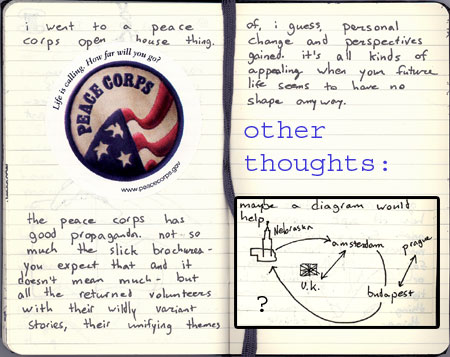 i went to a peace
corps open house thing.
Life is calling. How far will you go?
PEACE CORPS
www.peacecorps.gov
the peace corps has
good propaganda. not so
much the slick brochures-
you expect that and it
doesn't mean much- but
all the returned volunteers
with their wildly variant
stories, their unifying themes
of, i guess, personal
change and perspectives
gained. it's all kinds of
appealing when your future
life seems to have no
shape anyway.
other
thoughts:
maybe a diagram would
help.
Nebraska
amsterdam
prague
U.K.
budapest
?